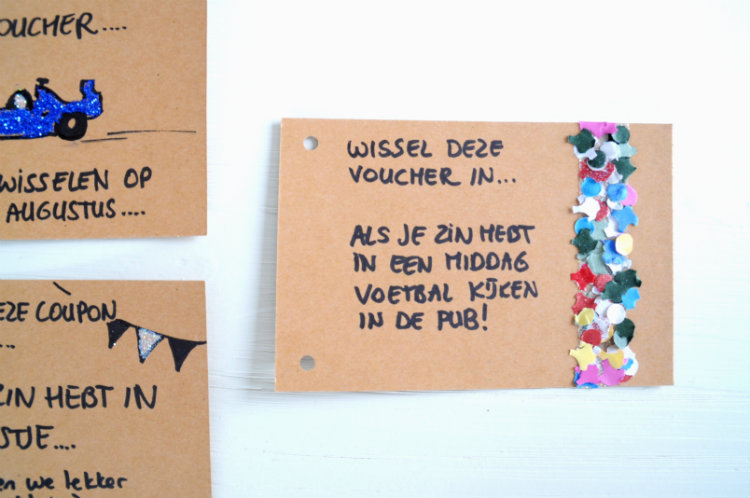 VOUCHER....
WISSELEN OP
AUGUSTUS....
COUPON
ZIN HEBT IN
we lekker
WISSEL DEZE
VOUCHER IN...
ALS JE ZIN HEBT
IN EEN MIDDAG
VOETBAL KIJKEN
IN DE PUB!